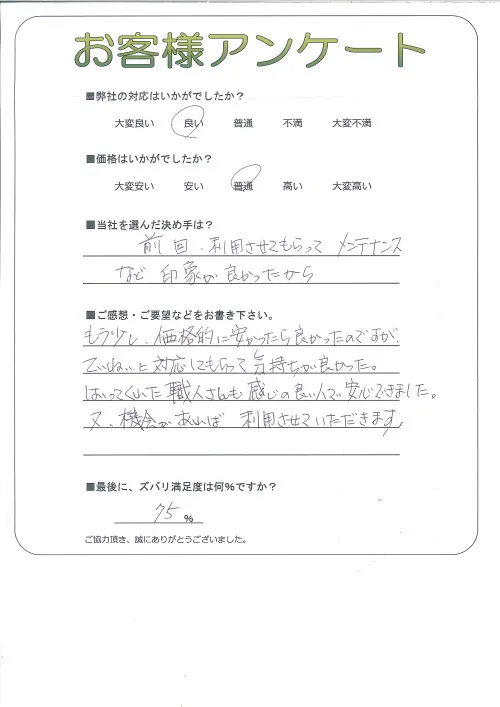 お客様アンケート
■弊社の対応はいかがでしたか?
大変良い 良い 普通 不満 大変不満
■価格はいかがでしたか?
大変安い 安い 普通 高い 大変高い
■当社を選んだ決め手は?
前回、利用させてもらって メンテナンス
など 印象が良かったから
■ご感想・ご要望などをお書き下さい。
もう少し、価格的に安かったら良かったのですが、
ていねいに対応してもらって気持ちが良かった。
はいってくれた職人さんも感じの良い人で安心できました。
又、機会があれば 利用させていただきます。
■最後に、ズバリ満足度は何%ですか?
75 %
ご協力頂き、誠にありがとうございました。